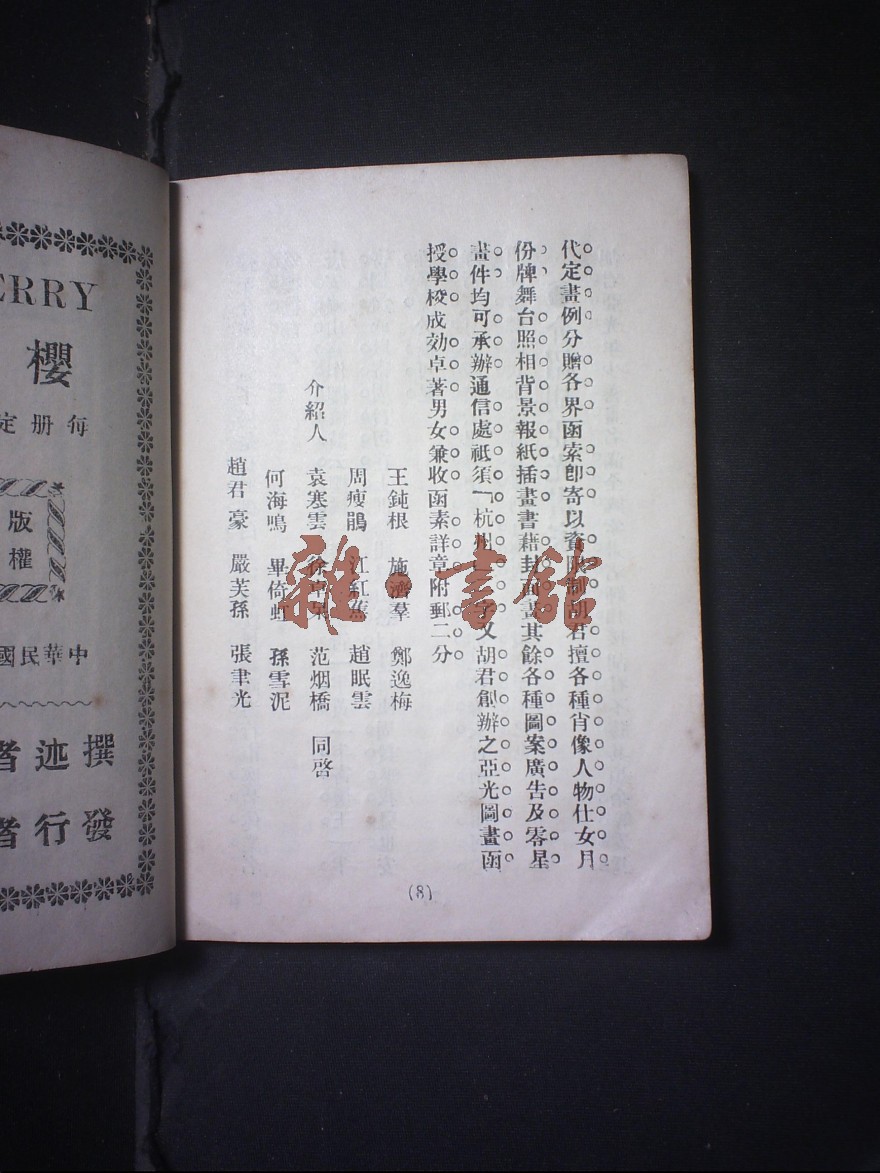 代定畫例分贈各界函索卽寄以資限制胡君擅各種肖像人物仕女月
份牌舞台照相背景報紙插畫書藉封面畫其餘各種圖案廣告及零星
畫件均可承辦通信處祗須「杭州 字又胡君創辦之亞光圖畫函
授學校成効卓著男女兼收函素詳章附郵二分
介紹人
王鈍根 施濟羣 鄭逸梅
周瘦鵑 江紅蕉 趙眠雲
袁寒雲 徐卓呆 范烟橋 同啓
何海鳴 畢倚虹 孫雪泥
趙君豪 嚴芙孫 張聿光
(8)
ERRY
櫻
每册定
版權
中華民國
撰述者
發行者
雜·書館